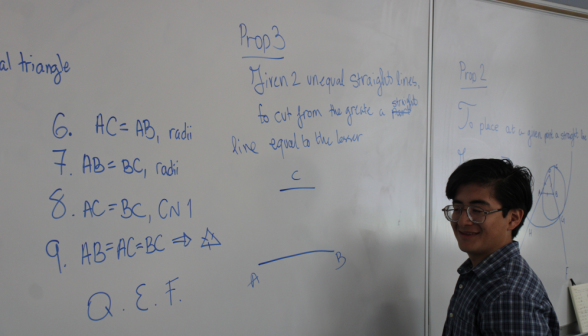 al triangle
6. AC = AB, radii
7. AB = BC, radii
8. AC = BC, CN 1
9. AB = AC = BC ⇒
Q. E. F.
Prop 3
Given 2 unequal straight lines,
to cut from the greate a straight
line equal to the lesser
C
A B
Prop 2
To place at a given point a straight